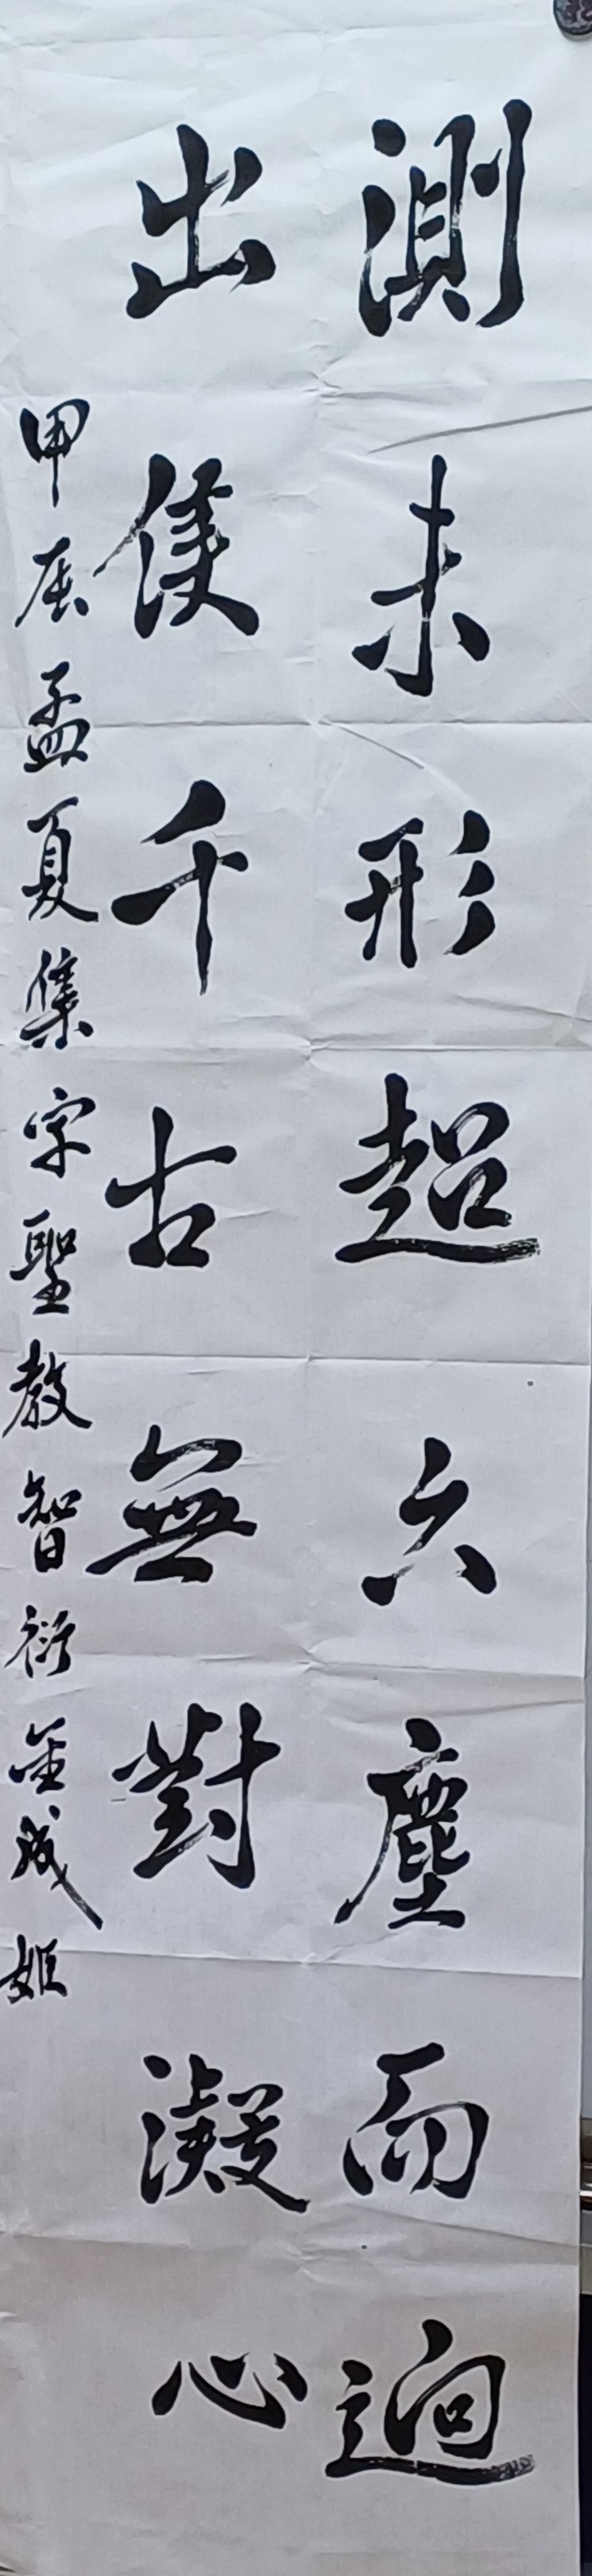 測未形超六塵而迥
出隻千古無對凝心
甲辰孟夏集字聖教智衍金成姬